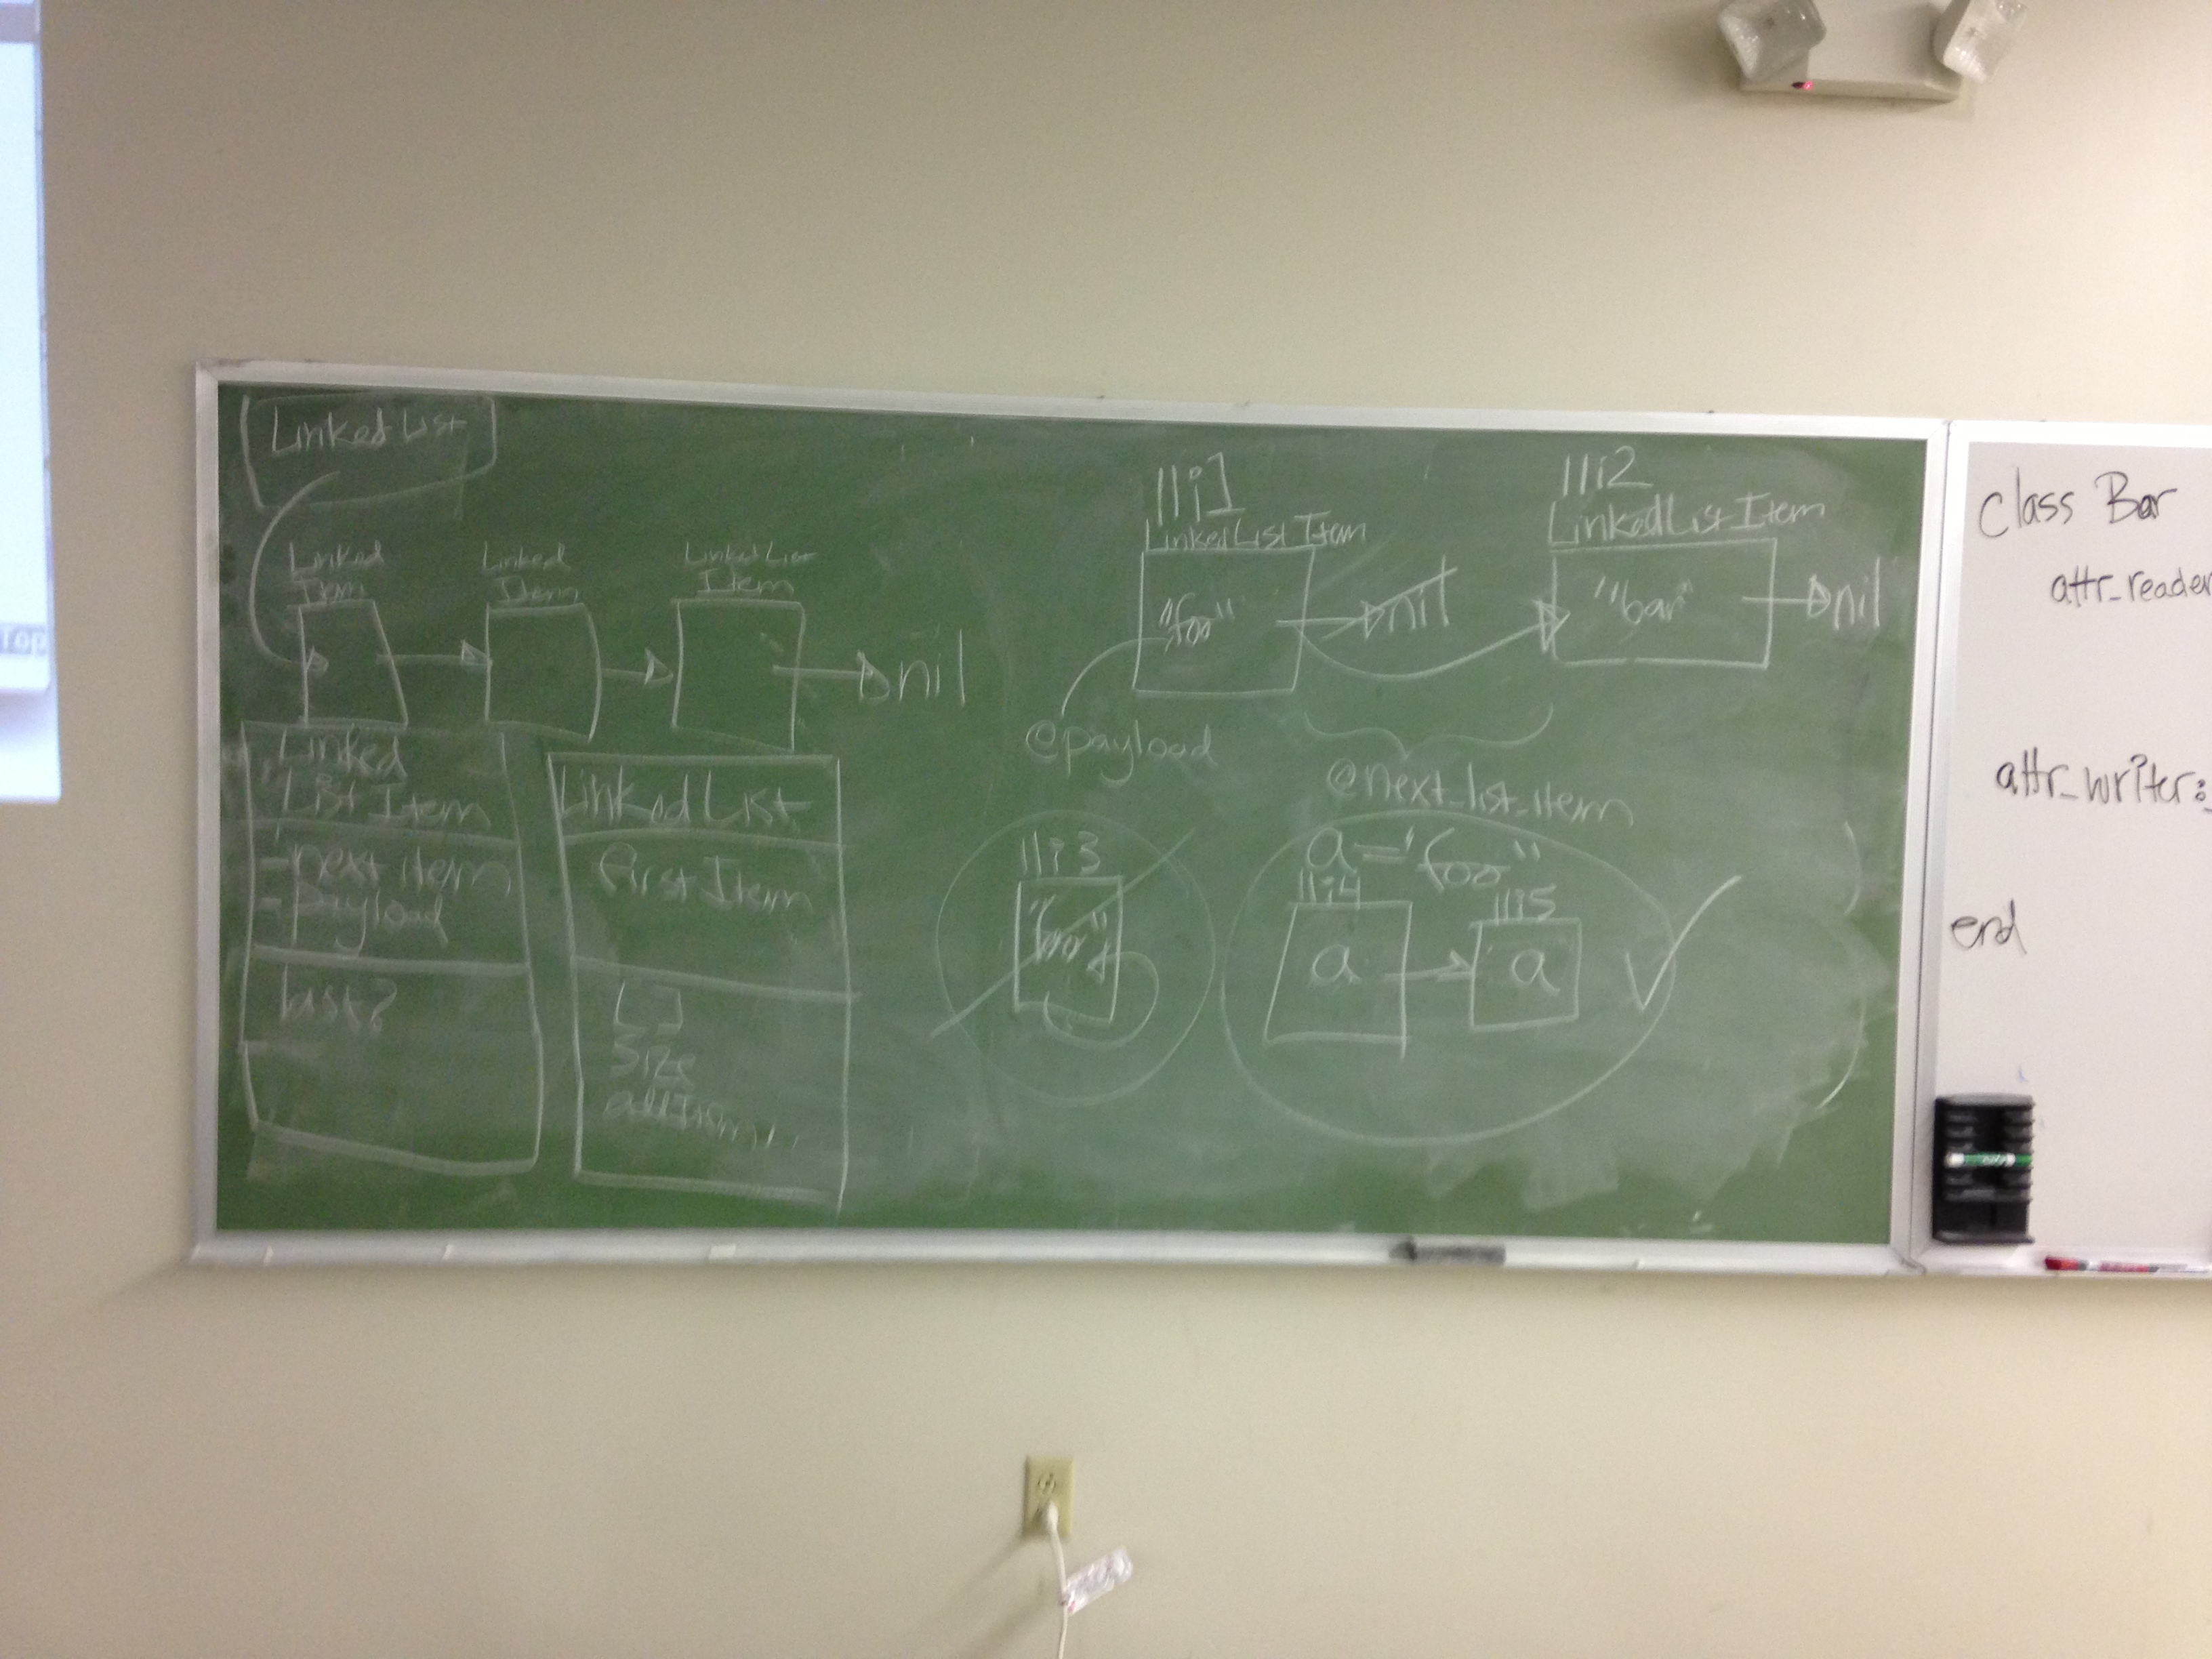 Top
LinkedList
Linked
Item
Linked
Item
LinkedList
Item
nil
Linked
List Item
-next item
-payload
last?
LinkedList
first Item
[]
Size
lli1
LinkedListItem
"foo"
nil
@payload
lli2
LinkedListItem
"bar"
nil
@next_list_item
lli3
a="foo"
lli4
a
lli5
a
class Bar
attr_reader
attr_writer:
end